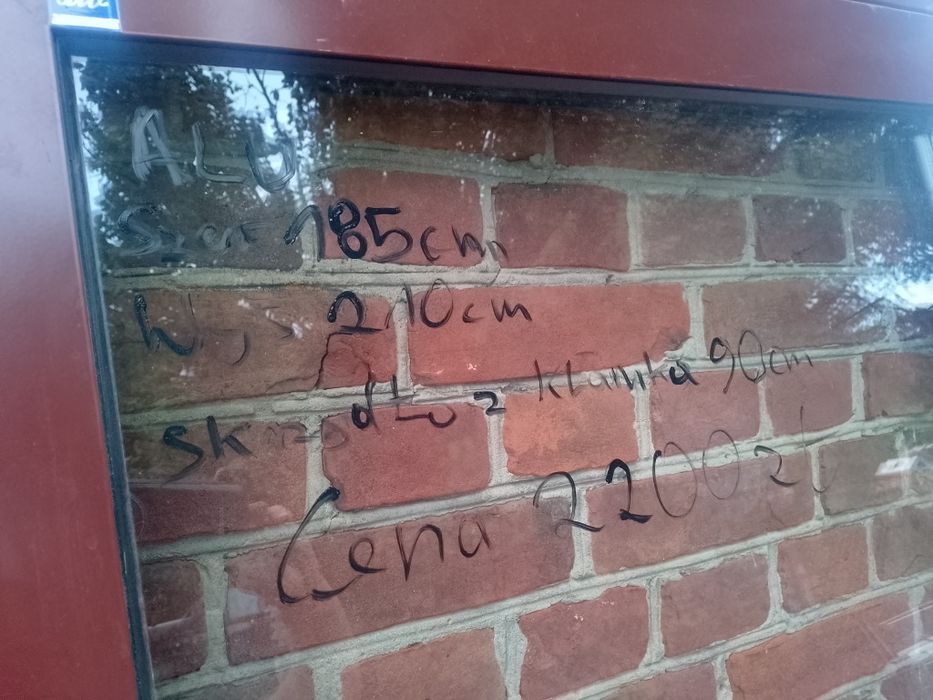 ALU
Szer 185cm
Wys 210cm
Skrzydło z klamką 90cm
Cena 2200 zł